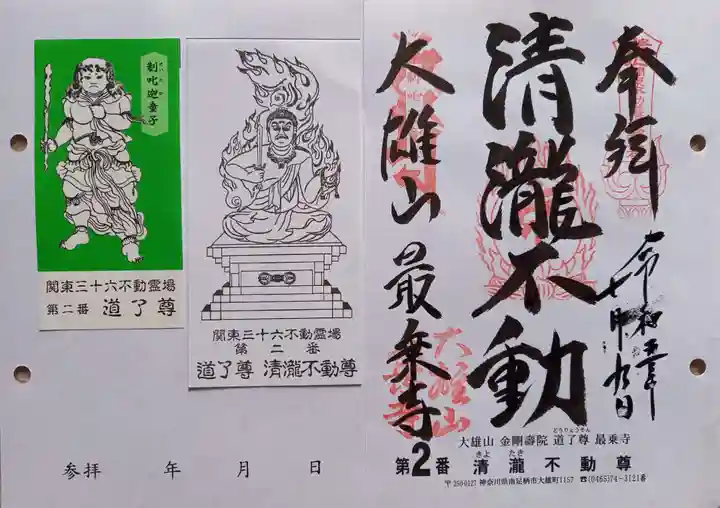 奉拝
令和五年
七月九日
清瀧不動
大雄山最乗寺
大雄山
大雄山 金剛壽院 道了尊 最乗寺
どうりょうそん
第2番 清瀧不動尊
きよ たき
〒250-0127 神奈川県南足柄市大雄町1157 ☎(0465)74-3121番
制吒迦童子
せいたか
関東三十六不動霊場
第二番 道了尊
関東三十六不動霊場
第二番
道了尊 清瀧不動尊
参拝 年 月 日